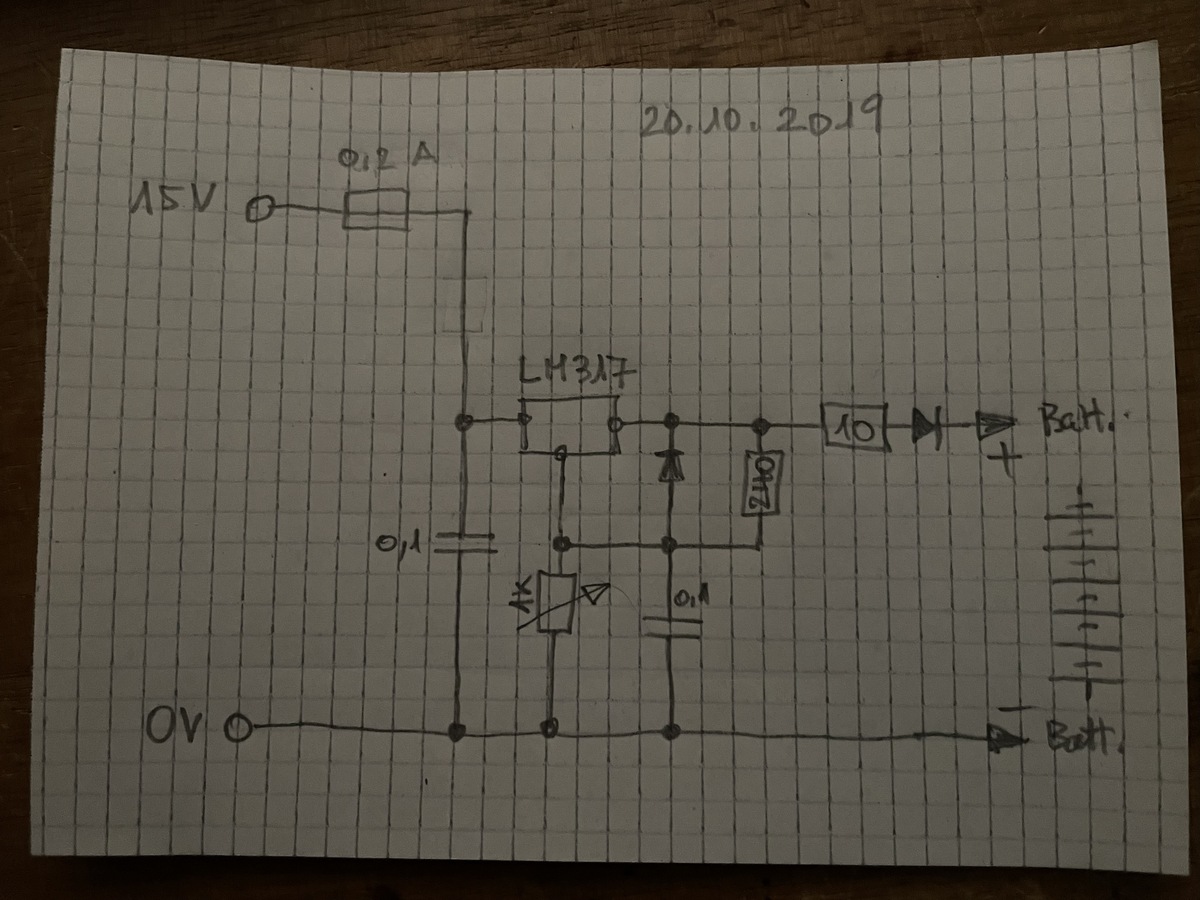 20.10.2019
0,2 A
15V
LM317
10
Batt.
+
240
0,1
1K
0,1
0V
-
Batt.